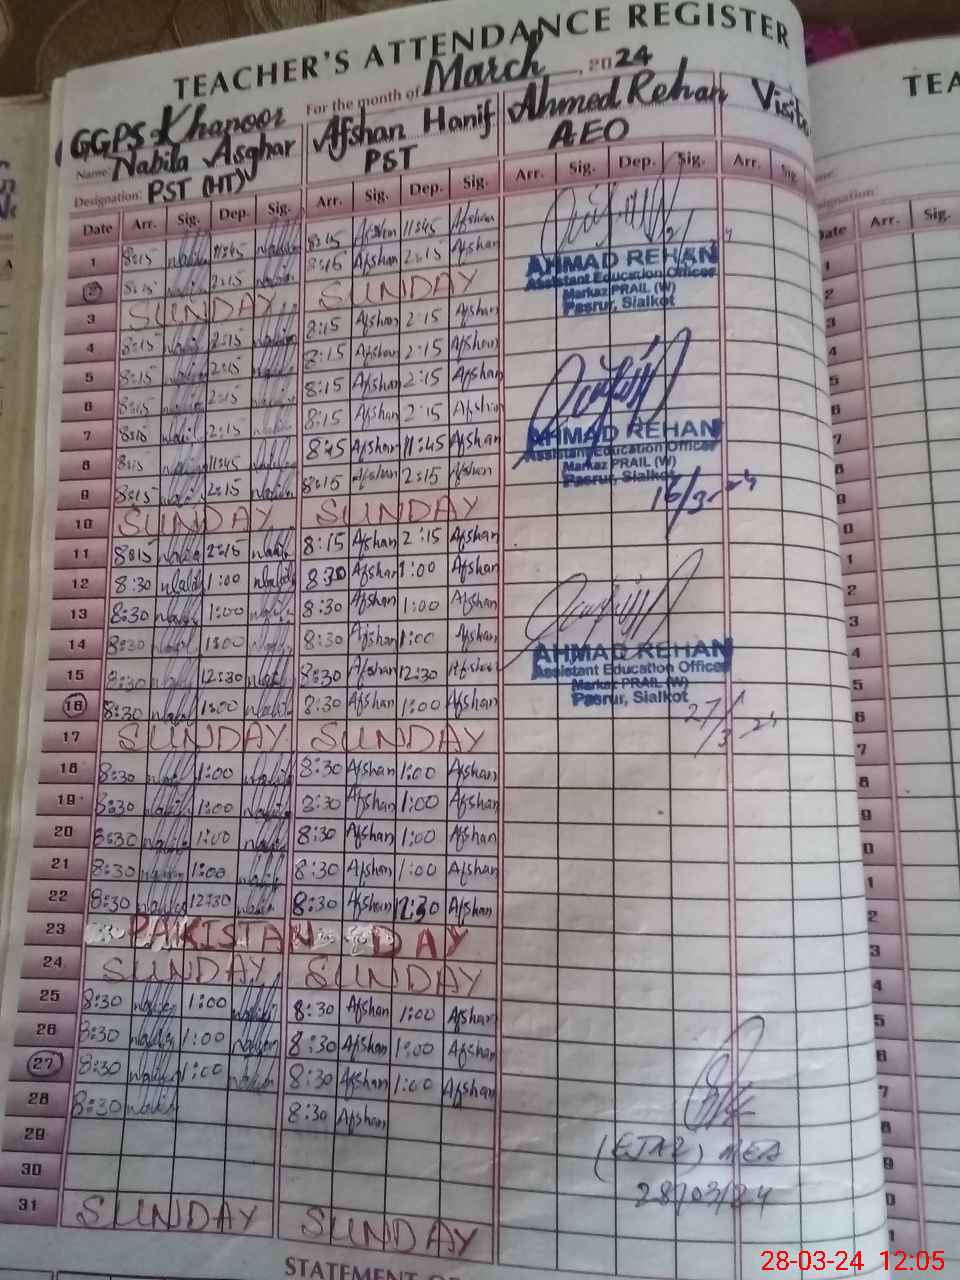 TEACHER'S ATTENDANCE REGISTER
For the month of March, 2024
GGPS Khanoor Afshan Hanif Ahmed Rehan Visits
Name: Nabila Asghar PST AEO
Designation: PST (HT)
Date Arr. Sig. Dep. Sig. Arr. Sig. Dep. Sig. Arr. Sig. Dep. Sig. Arr. Sig.
1 8:15 11:45 8:15 Afshan 11:45 Afshan
2 8:15 2:15 8:15 Afshan 2:15 Afshan
3 SUNDAY SUNDAY
4 8:15 2:15 8:15 Afshan 2:15 Afshan
5 8:15 2:15 8:15 Afshan 2:15 Afshan
6 8:15 2:15 8:15 Afshan 2:15 Afshan
7 8:15 2:15 8:15 Afshan 2:15 Afshan
8 8:15 11:45 8:15 Afshan 11:45 Afshan
9 8:15 2:15 8:15 Afshan 2:15 Afshan
10 SUNDAY SUNDAY
11 8:15 2:15 8:15 Afshan 2:15 Afshan
12 8:30 1:00 8:30 Afshan 1:00 Afshan
13 8:30 1:00 8:30 Afshan 1:00 Afshan
14 8:30 1:00 8:30 Afshan 1:00 Afshan
15 8:30 12:30 8:30 Afshan 12:30 Afshan
16 8:30 1:00 8:30 Afshan 1:00 Afshan
17 SUNDAY SUNDAY
18 8:30 1:00 8:30 Afshan 1:00 Afshan
19 8:30 1:00 8:30 Afshan 1:00 Afshan
20 8:30 1:00 8:30 Afshan 1:00 Afshan
21 8:30 1:00 8:30 Afshan 1:00 Afshan
22 8:30 12:30 8:30 Afshan 12:30 Afshan
23 PAKISTAN DAY
24 SUNDAY SUNDAY
25 8:30 1:00 8:30 Afshan 1:00 Afshan
26 8:30 1:00 8:30 Afshan 1:00 Afshan
27 8:30 1:00 8:30 Afshan 1:00 Afshan
28 8:30 8:30 Afshan
29
30
31 SUNDAY SUNDAY
AHMAD REHAN
Assistant Education Officer
Markaz PRAIL (W)
Pasrur, Sialkot
AHMAD REHAN
Assistant Education Officer
Markaz PRAIL (W)
Pasrur, Sialkot
16/3-24
AHMAD REHAN
Assistant Education Officer
Markaz PRAIL (W)
Pasrur, Sialkot
27/3 24
MEA
28/03/24
STATEMENT
TEA
Designation:
Date Arr. Sig.
28-03-24 12:05